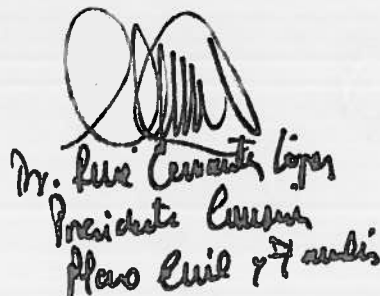 Dr. René Cervantes López
Presidente Comisión
Pleno Civil y Familia